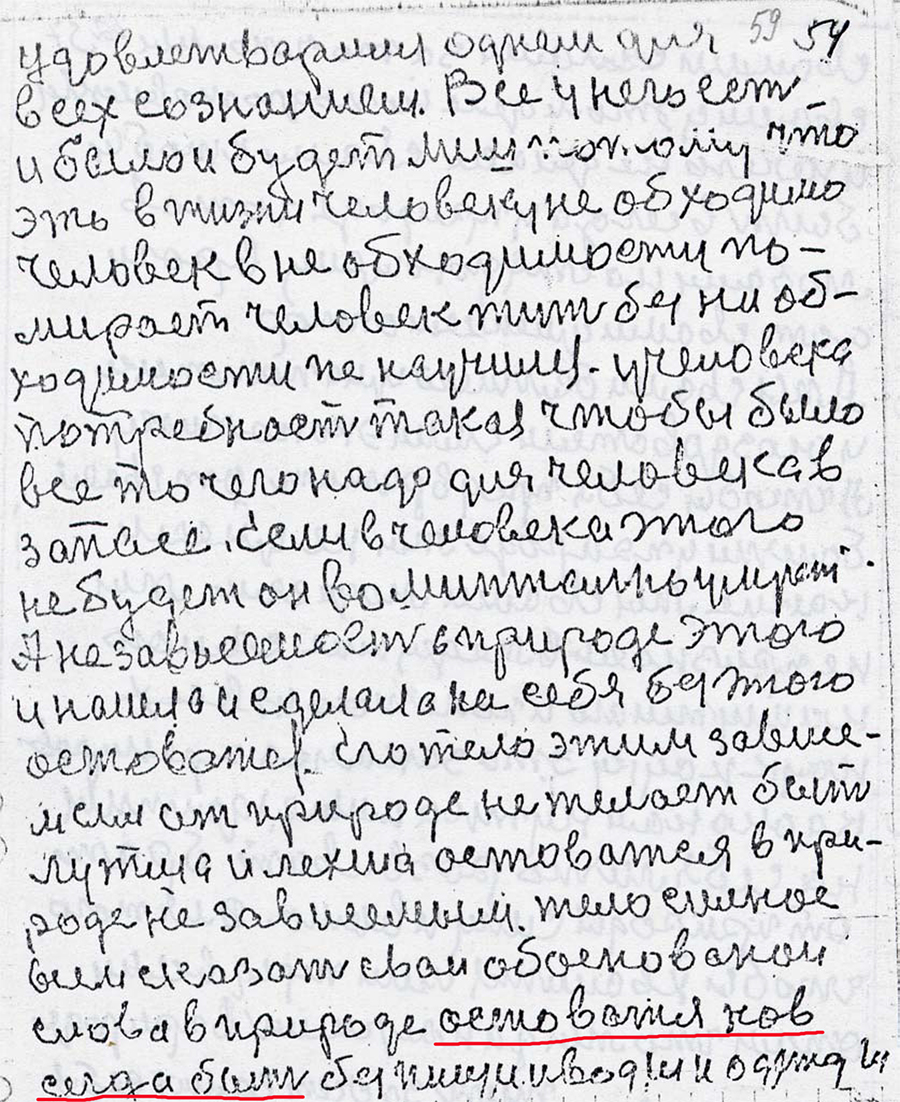 59 54
удовлетваряния одним для
всех сознанием. Все у него ест
и было и будет лиш потому что
эть в жизни человеку не обходимо
человек в не обходимости по-
мирает человек жит без ни об-
ходимости не научился. у человека
потребност такая чтобы было
все то чего надо для человека в
запасе. Если в человека этого
не будет он во умират.
А незавысемост в природе этого
и нашла и сделала на себя без этого
остоватся. Его тело этим завис-
мем от природе не желает быт
лутша и лехша остоватся в при-
роде не зависемым. тело силное
вых сказат сваи обоснованои
слова в природе остоватся нов
сегда быт без пищи и воды и одежды